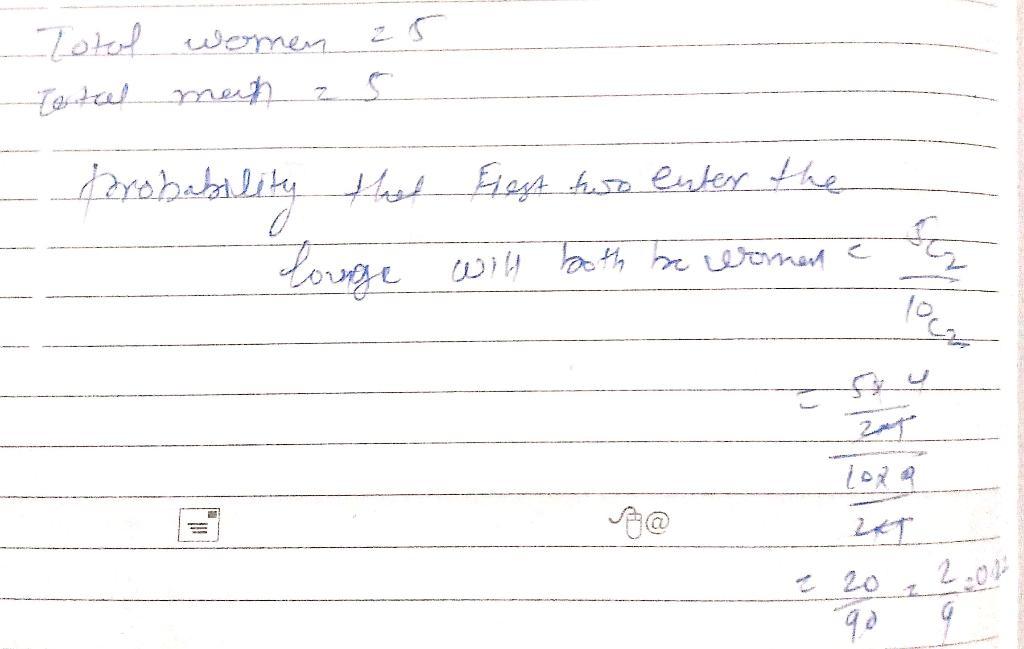 Total women = 5
Total men = 5
probability that First two enter the
lounge will both be women = 5C2
10C2
= 5x4
2x1
10x9
2x1
@
= 20 = 2 =
90 9